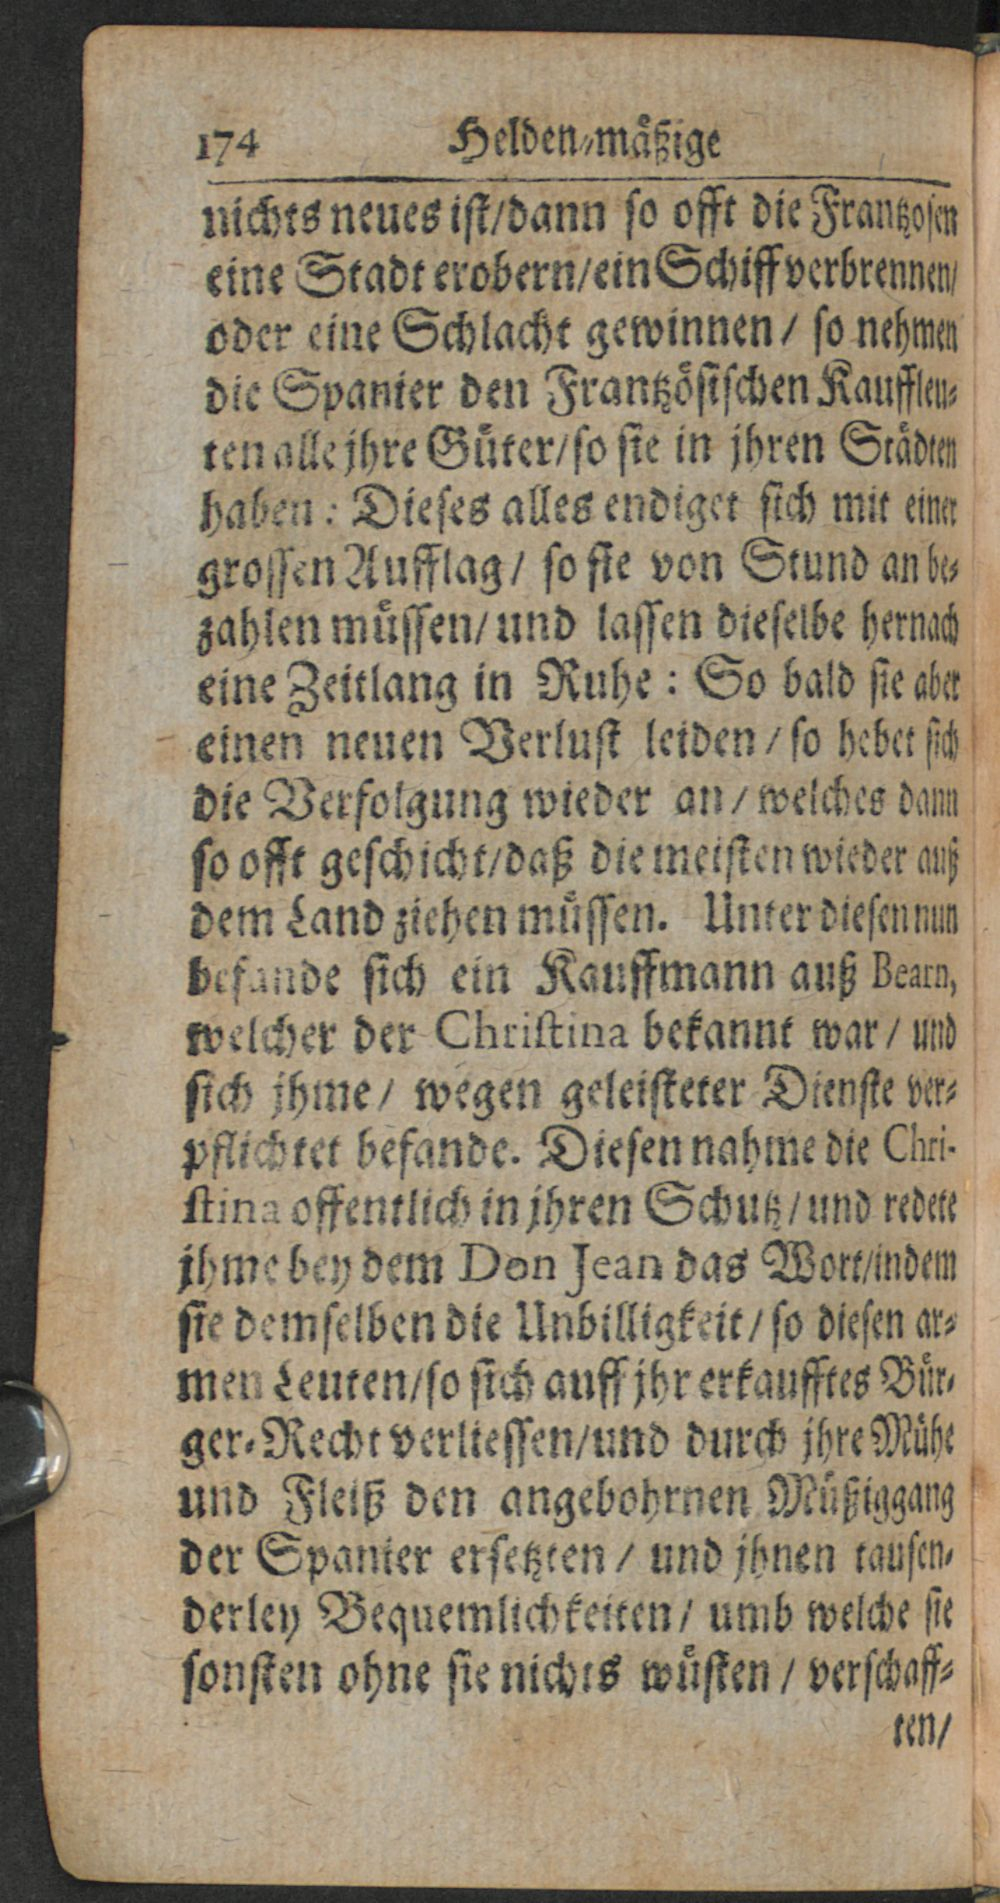 174 Helden-mäßige
nichts neues ist/dann so offt die Frantzosen
eine Stadt erobern/ein Schiff verbrennen/
oder eine Schlacht gewinnen / so nehmen
die Spanier den Frantzösischen Kauffleu-
ten alle jhre Güter/so sie in jhren Städten
haben: Dieses alles endiget sich mit einer
grossen Aufflag / so sie von Stund an be-
zahlen müssen/ und lassen dieselbe hernach
eine Zeitlang in Ruhe: So bald sie aber
einen neuen Verlust leiden / so hebet sich
die Verfolgung wieder an / welches dann
so offt geschicht/daß die meisten wieder auß
dem Land ziehen müssen. Unter diesen nun
befande sich ein Kauffmann auß Bearn,
welcher der Christina bekannt war / und
sich jhme / wegen geleisteter Dienste ver-
pflichtet befande. Diesen nahme die Chri-
stina offentlich in jhren Schutz / und redete
jhme bey dem Don Jean das Wort/indem
sie demselben die Unbilligkeit / so diesen ar-
men Leuten/so sich auff jhr erkaufftes Bür-
ger-Recht verliessen/und durch jhre Mühe
und Fleiß den angebohrnen Müßiggang
der Spanier ersetzten / und jhnen tausen-
derley Bequemlichkeiten / umb welche sie
sonsten ohne sie nichts wüsten / verschaff-
ten/